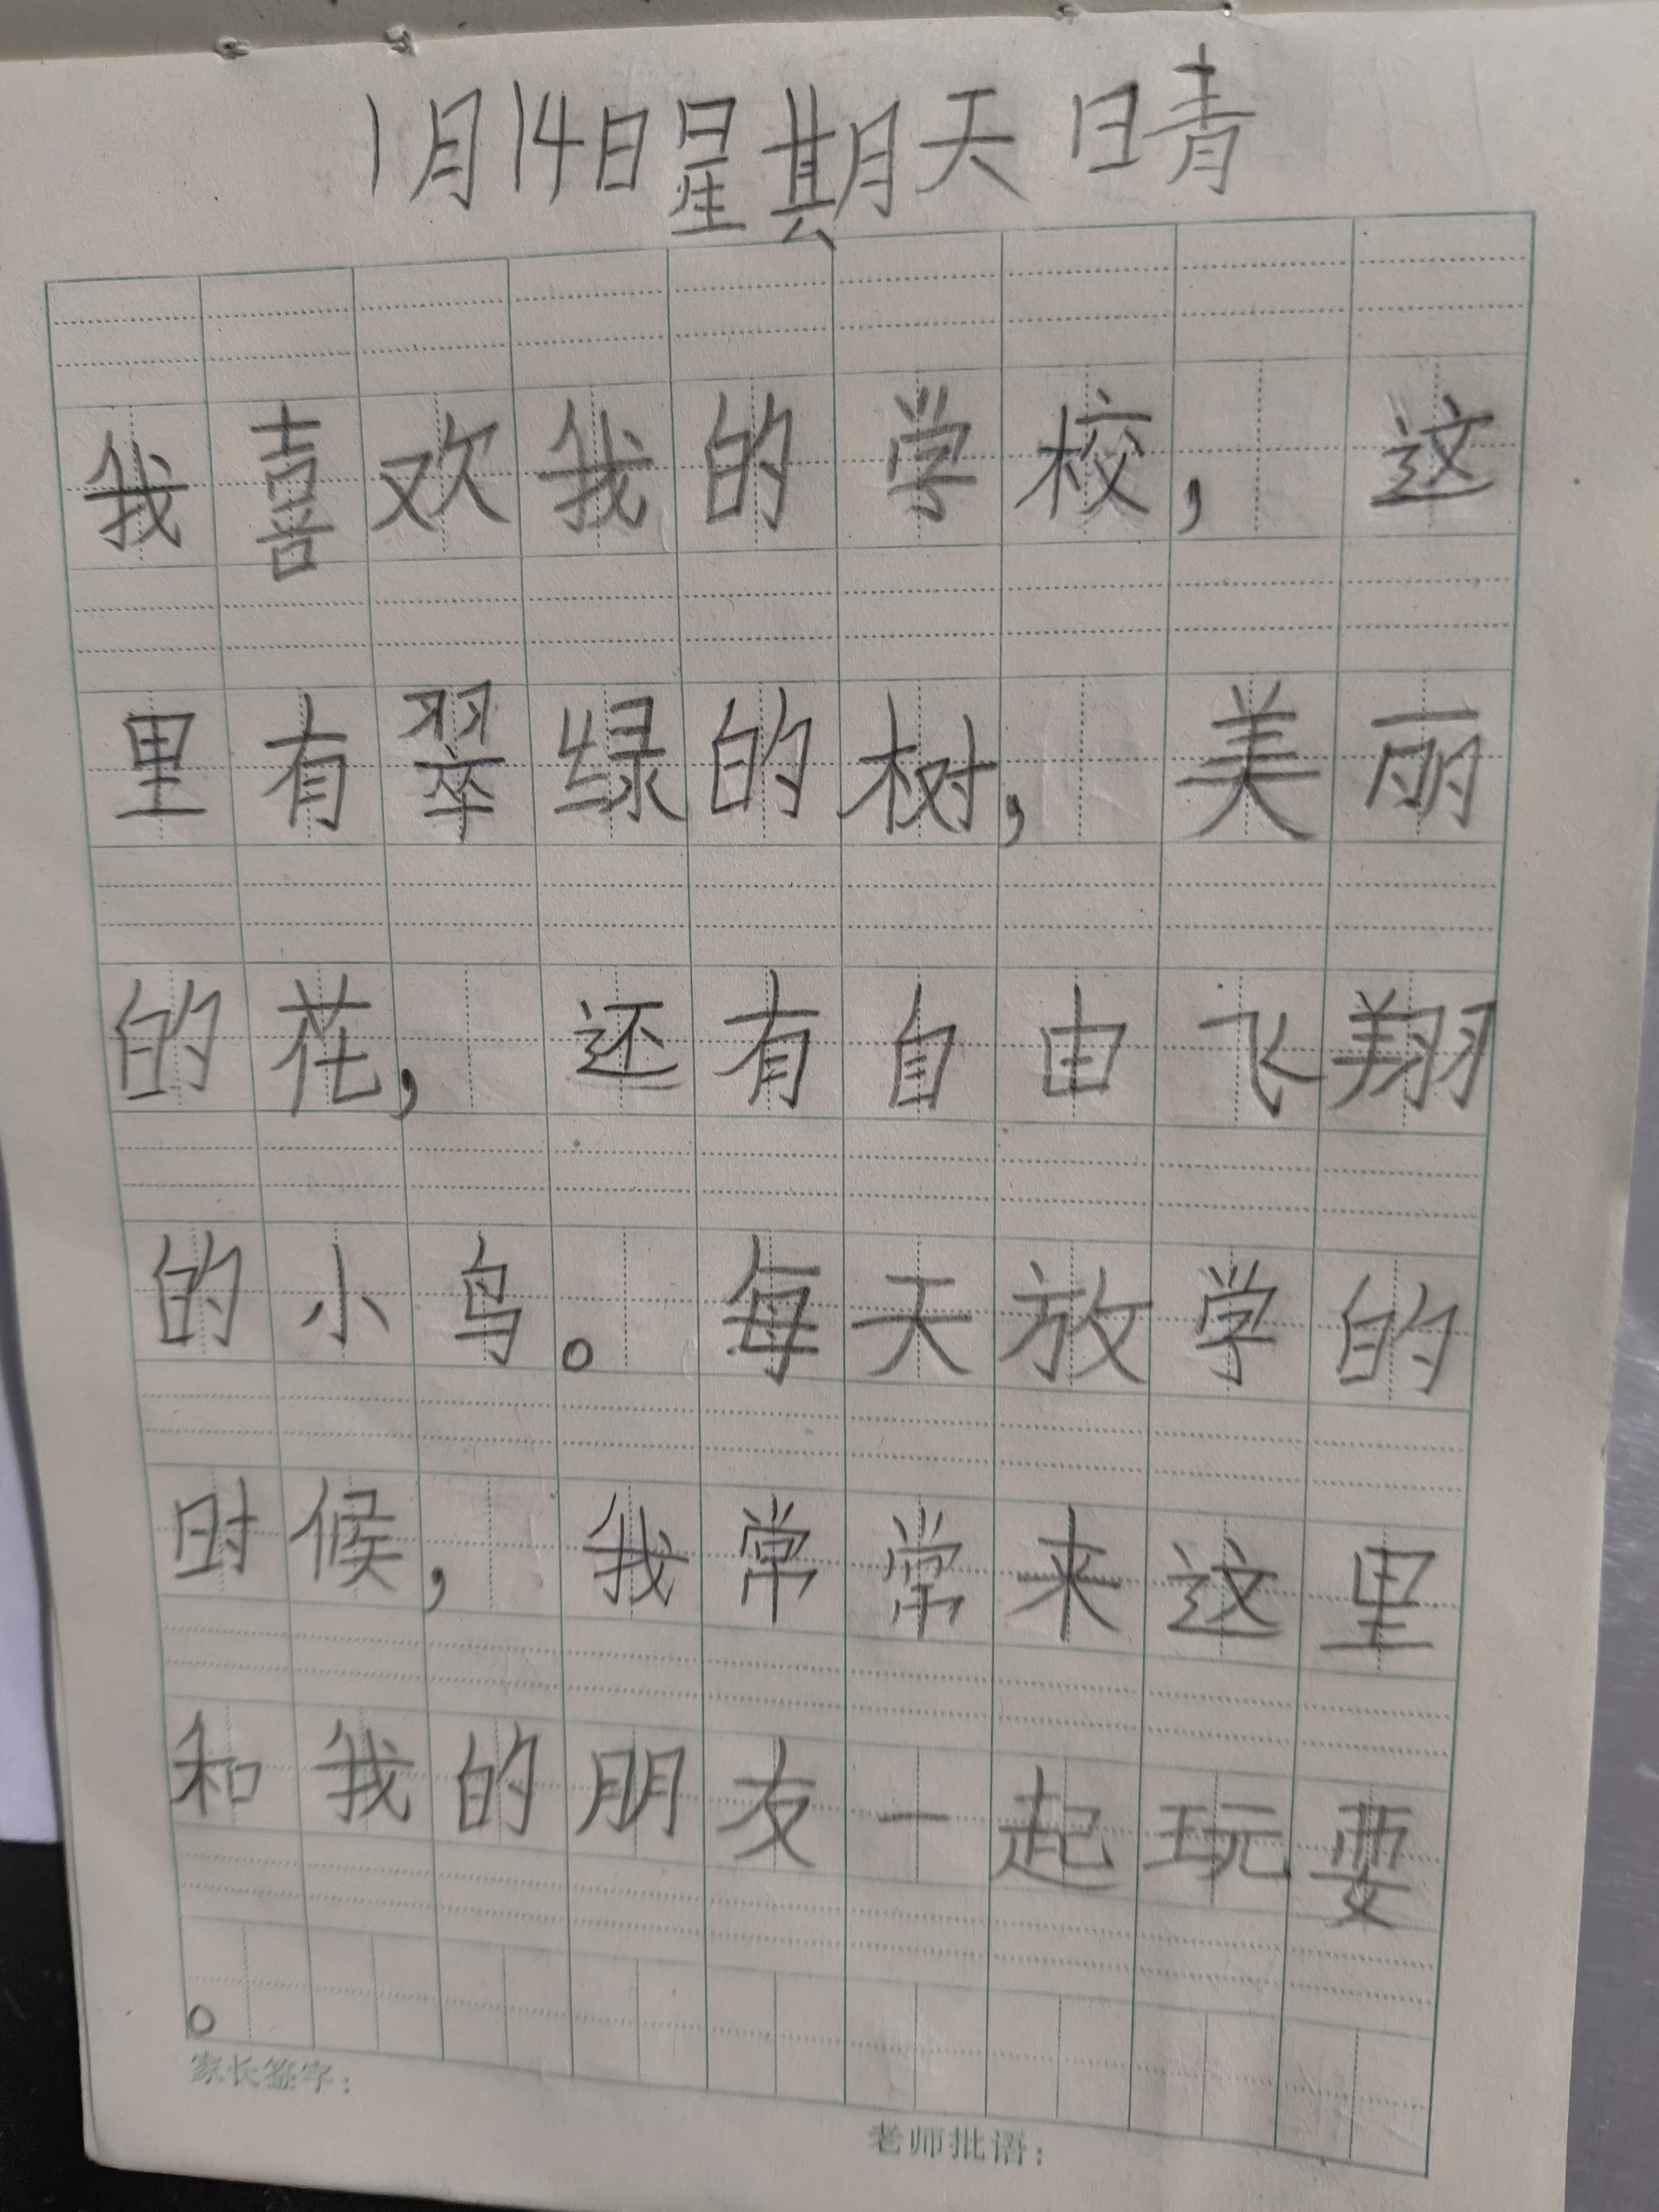 1月14日星期天 晴
我喜欢我的学校，这
里有翠绿的树，美丽
的花，还有自由飞翔
的小鸟。每天放学的
时候，我常常来这里
和我的朋友一起玩要
。
家长签字：
老师批语：